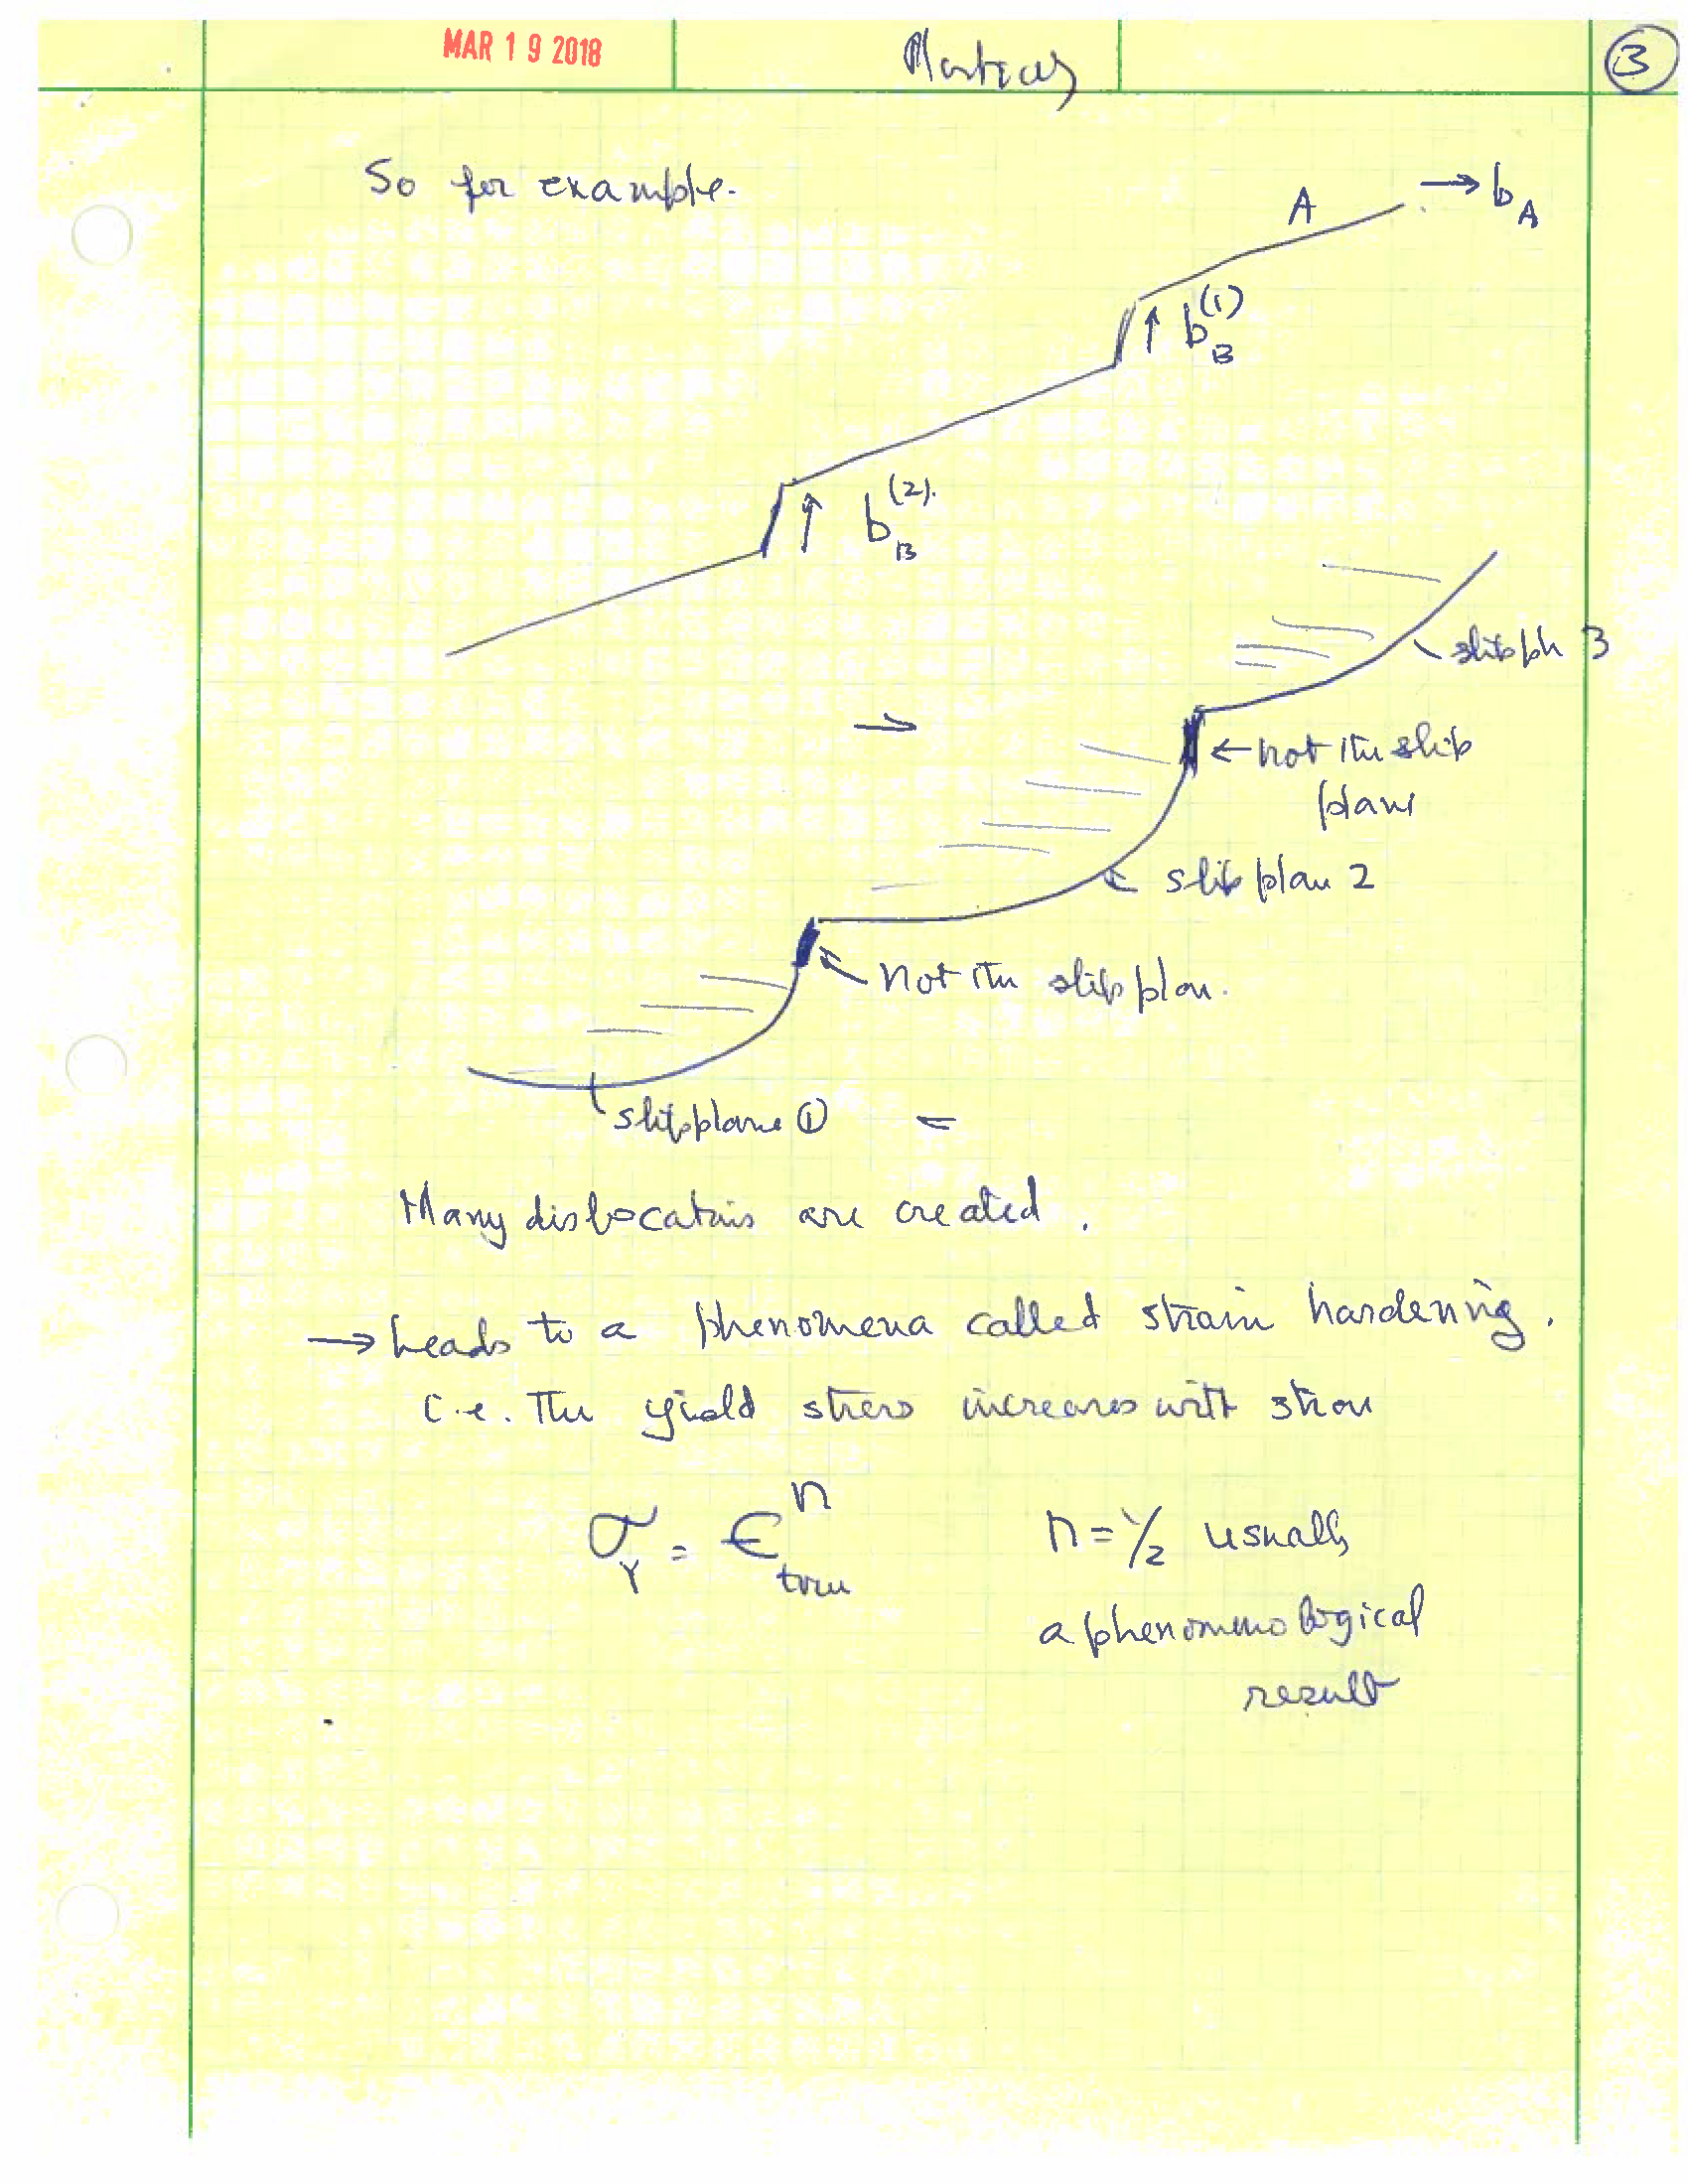 MAR 19 2018
3
So for example.
A → b_A
↑ b_B^(1)
↑ b_B^(2).
slip pln 3
→
← not the slip
plane
← slip plan 2
← not the slip plan.
slip plane ①
Many dislocatins are created.
→ Leads to a phenomena called strain hardening.
i.e. The yield stress increases with
σ_Y = ϵ_true^n
n = 1/2 usually
a phenomenological
result